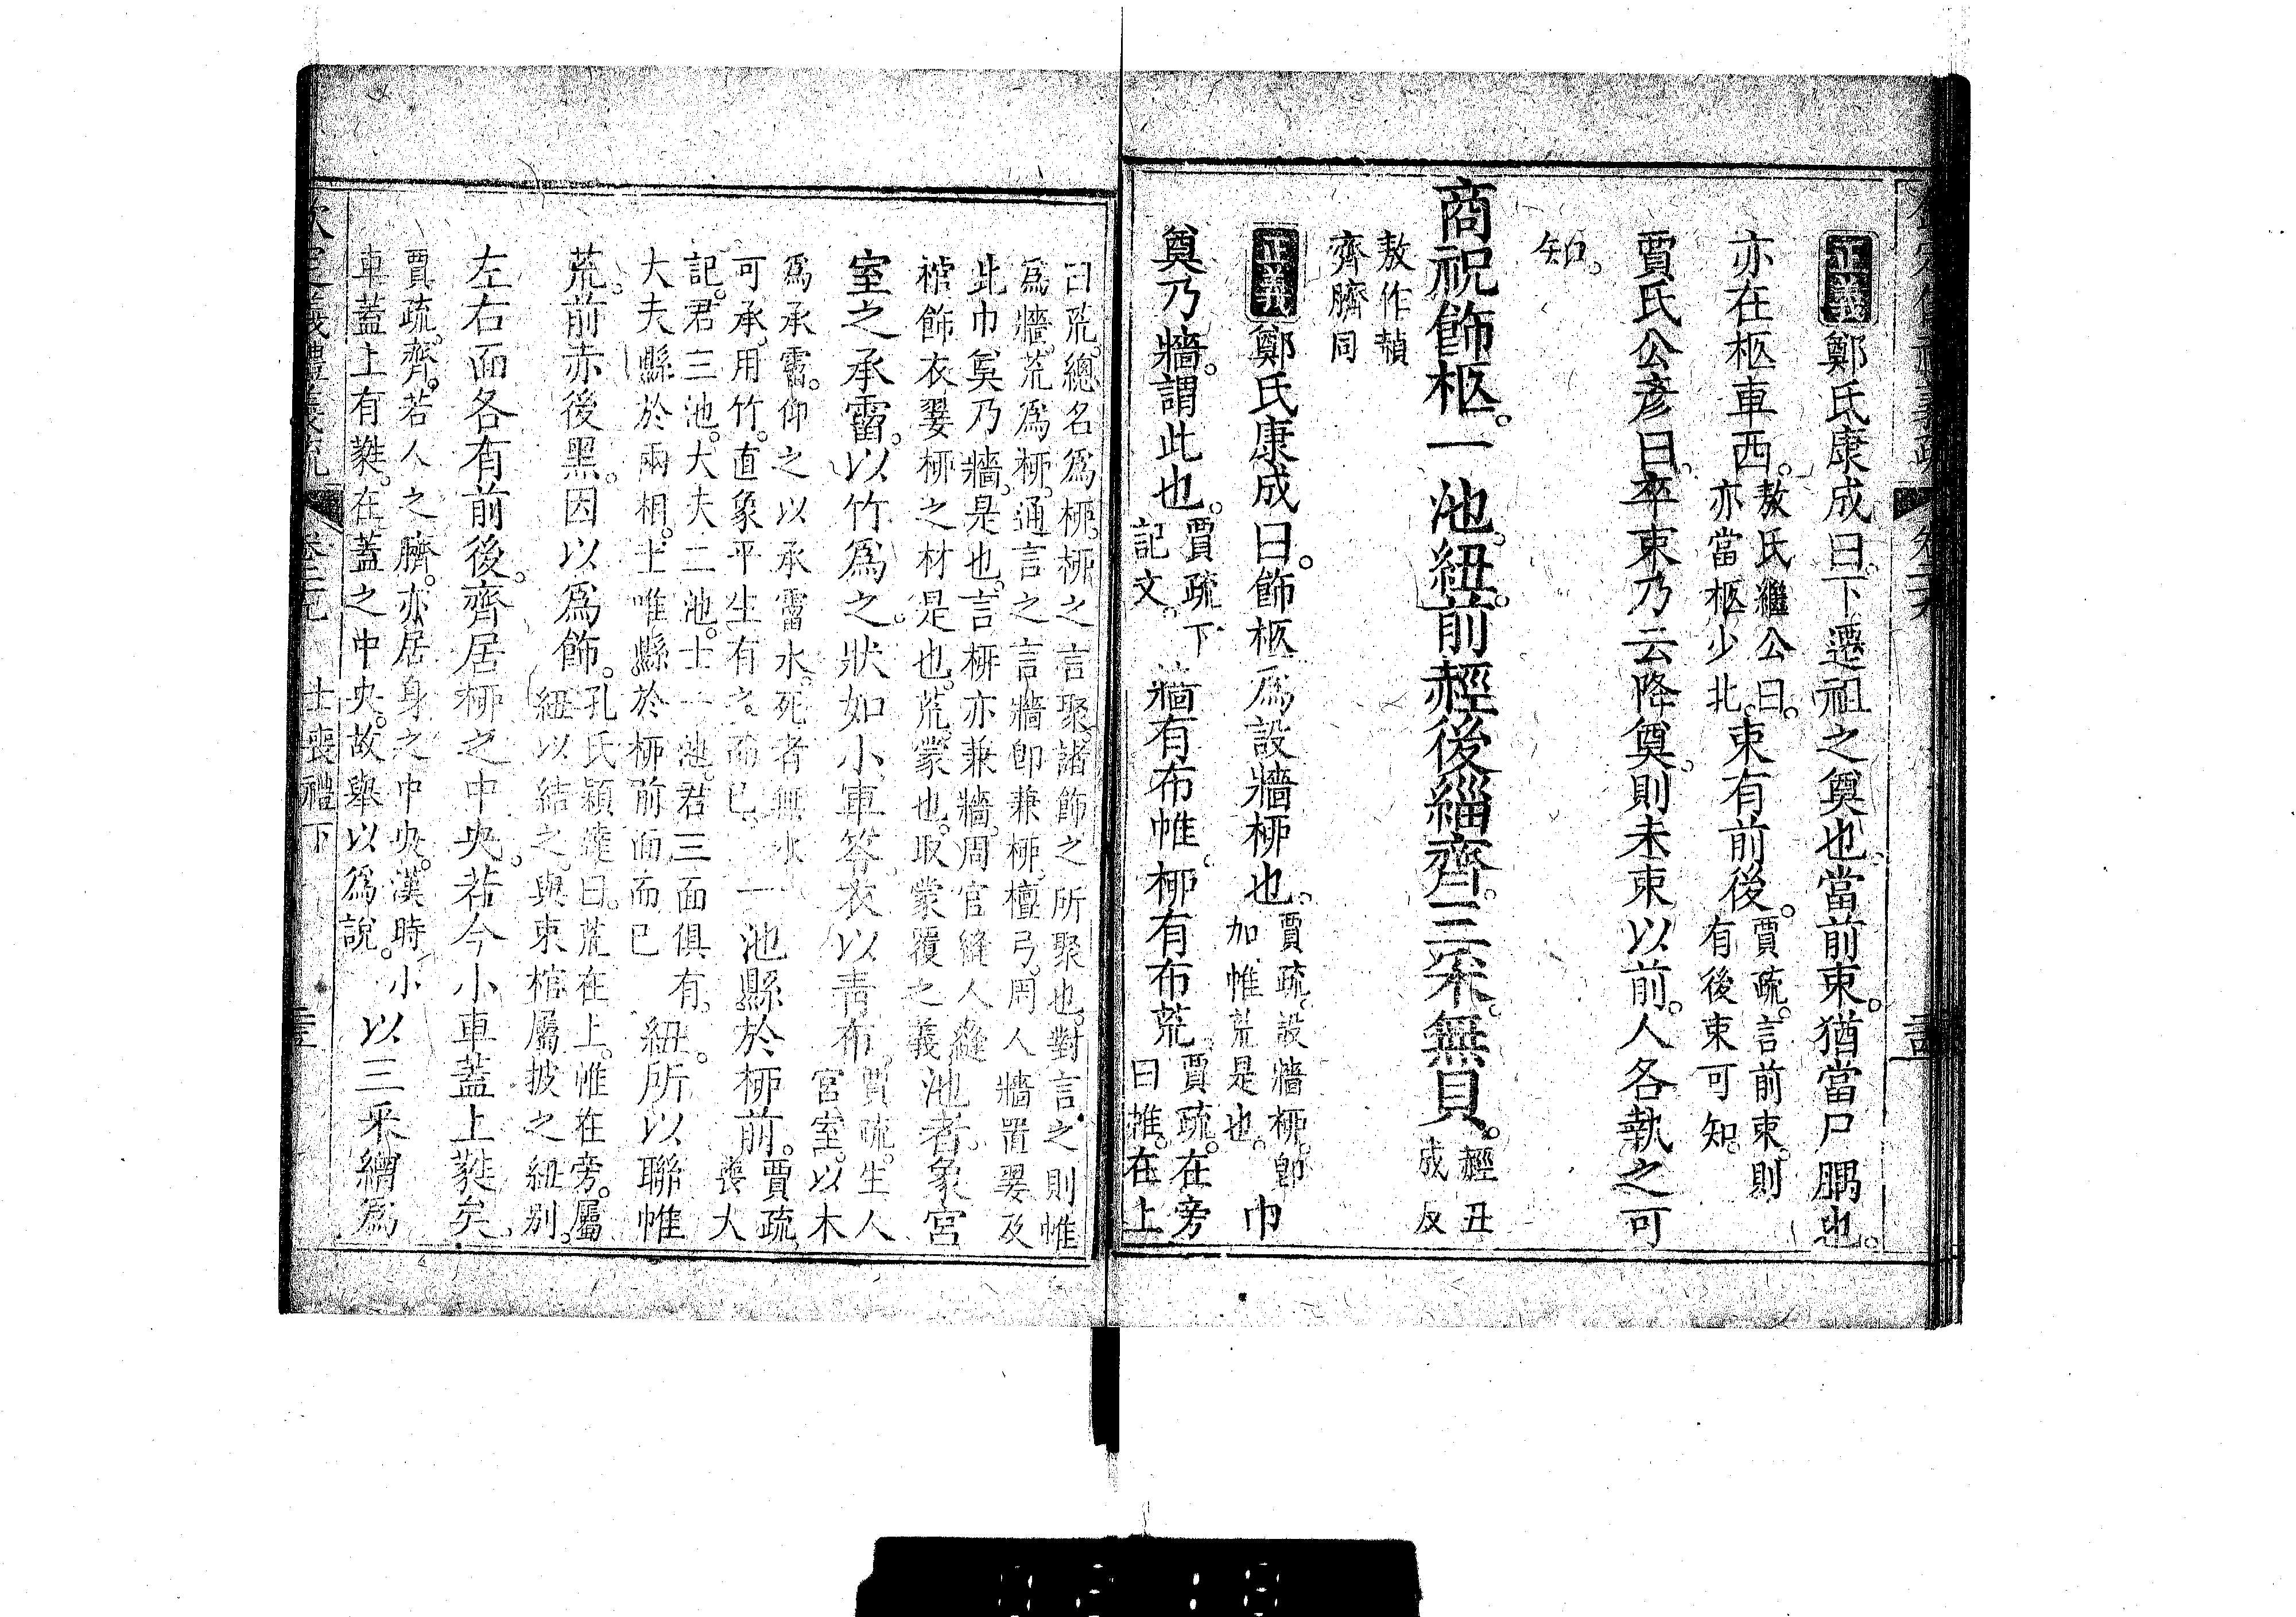 正義鄭氏康成曰。下遷祖之奠也。當前束。猶當尸腢也。
亦在柩車西。敖氏繼公曰。亦當柩少北。束有前後。賈疏。言前束。則有後束可知。
賈氏公彥曰。卒束乃云降奠。則未束以前。人各執之可
知。
商祝飾柩。一池。紐前䞓後緇。齊三采。無貝。䞓丑成反
敖作赬齊臍同
正義鄭氏康成曰。飾柩爲設牆柳也。賈疏。設牆柳。卽加帷荒是也。巾
奠乃牆。謂此也。賈疏。下記文。牆有布帷。柳有布荒。賈疏。在旁曰帷。在上
曰荒。總名爲柳。柳之言聚。諸飾之所聚也。對言之則帷
爲牆。荒爲柳。通言之言牆卽兼柳。檀弓。周人牆置翣及
此巾奠乃牆。是也。言柳亦兼牆。周官縫人縫
棺飾衣翣柳之材是也。荒。蒙也。取蒙覆之義池者。象宮
室之承霤。以竹爲之。狀如小車笭。衣以青布。賈疏。生人宮室。以木
爲承霤。仰之以承霤水。死者無水
可承。用竹。直象平生有之而已。一池縣於柳前。賈疏。喪大
記。君三池。大夫二池。士一池。君三面俱有。
大夫縣於兩相。士唯縣於柳前面而已紐。所以聯帷
荒。前赤後黑。因以爲飾。孔氏穎達曰。荒在上。帷在旁。屬紐以結之。與束棺屬披之紐別。
左右面各有前後。齊居柳之中央。若今小車蓋上蕤矣。
賈疏。齊。若人之臍。亦居身之中央。漢時小
車蓋上有蕤。在蓋之中央。故舉以爲說。以三采繒爲
欽定儀禮義疏
士喪禮下